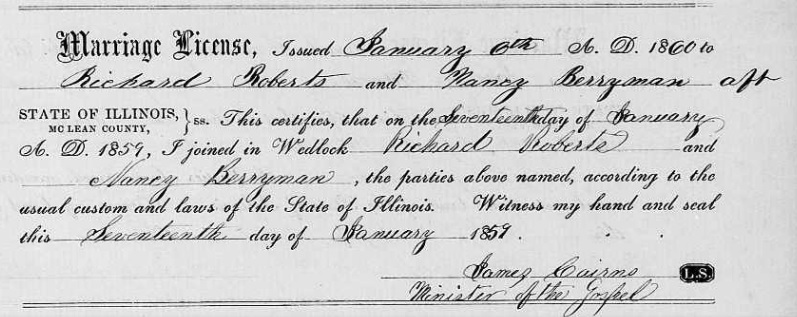 Marriage License, Issued January 6th A. D. 1860 to
Richard Roberts and Nancy Berryman aft
STATE OF ILLINOIS, McLEAN COUNTY, } ss. This certifies, that on the Seventeenth day of January
A. D. 1859, I joined in Wedlock Richard Roberts and
Nancy Berryman, the parties above named, according to the
usual custom and laws of the State of Illinois. Witness my hand and seal
this Seventeenth day of January 1859.
James Cairns L.S.
Minister of the Gospel